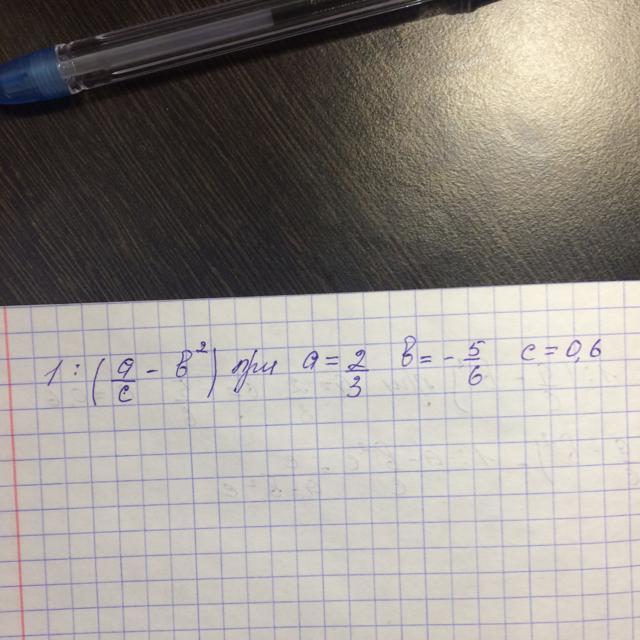 1 : (a/c - b²) при a = 2/3 b = - 5/6 c = 0,6